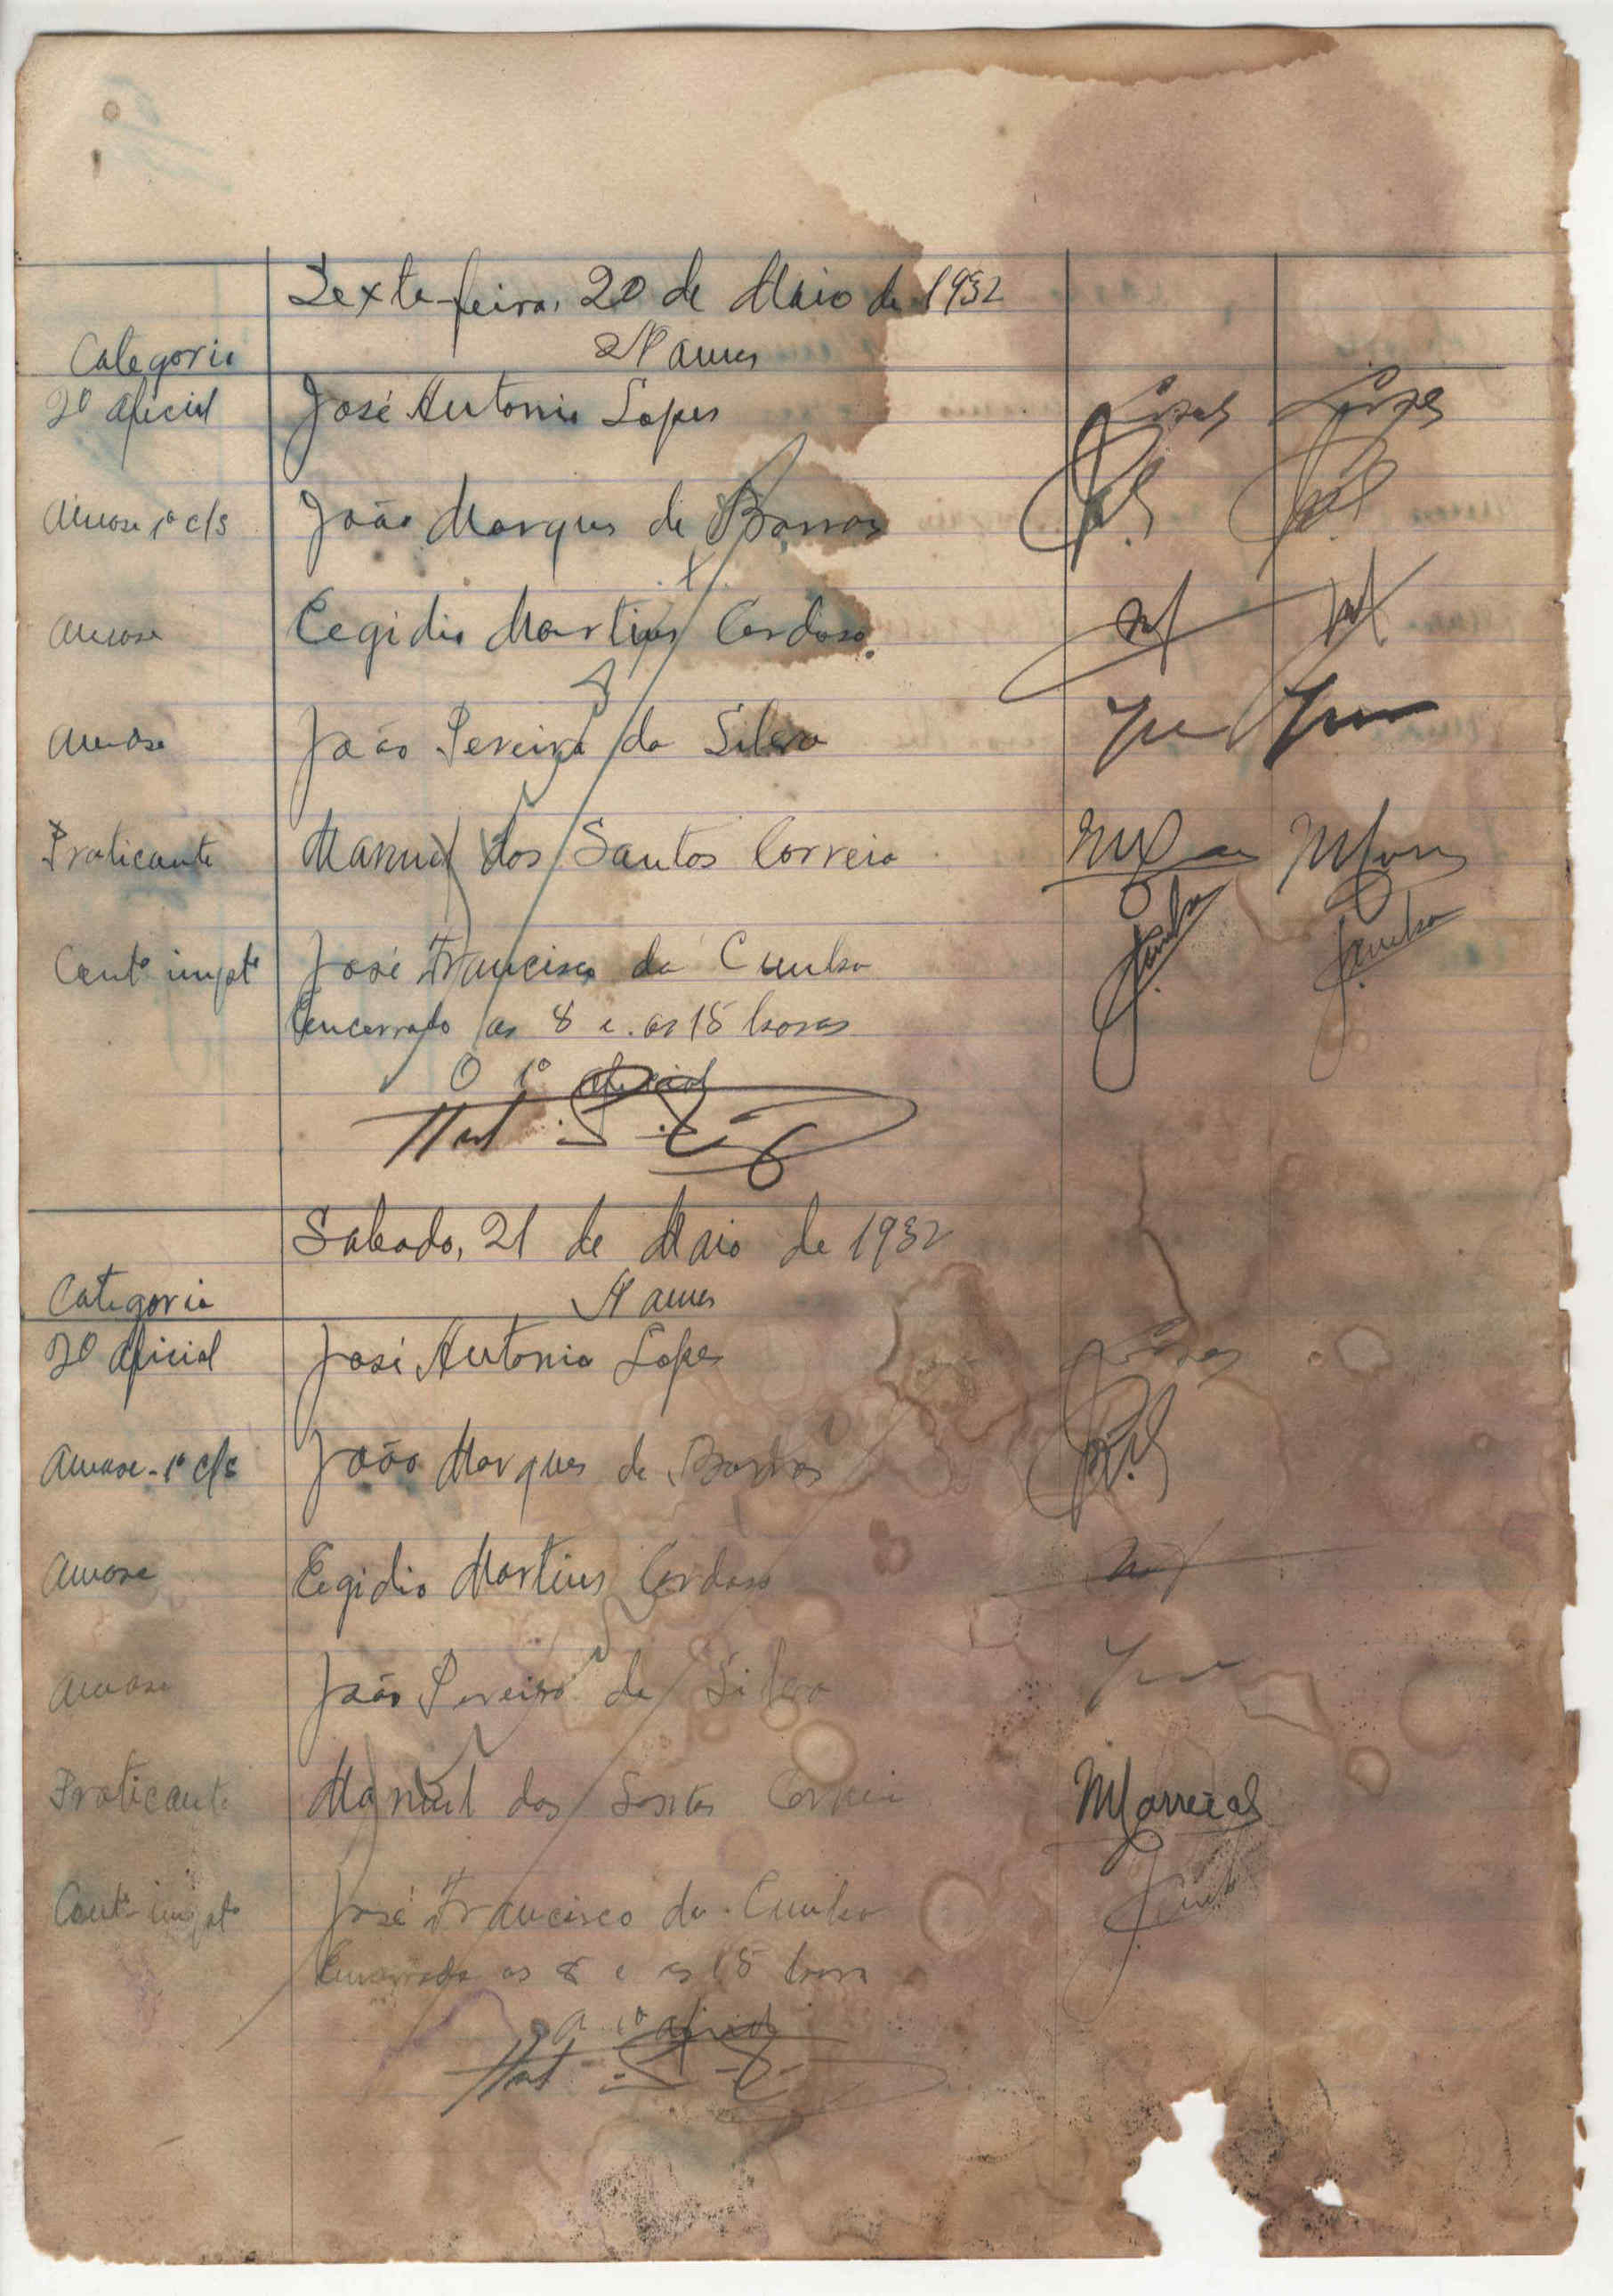 Sexta-feira, 20 de Maio de 1932
Categoria Nomes
2º Oficial José Antonio Lopes Lopes Lopes
Amase 1ª c/s João Marques de Barros
Amase Eegidio Martins Cardoso
Amase João Pereira da Silva
Praticante Manuel dos Santos Correia
Contº impte José Francisco da Cunha J. Cunha J. Cunha
Encerrado as 8 e as 15 horas
O 1º oficial
Sabado, 21 de Maio de 1932
Categoria Nomes
2º Oficial José Antonio Lopes Lopes
Amase - 1ª c/s João Marques de Barros
Amase Eegidio Martins Cardoso
Amase João Pereira da Silva
Praticante Manuel dos Santos Correia MCorreia
Contº impte José Francisco da Cunha J. Cunha
Encerrado as 8 e as 15 horas
O 1º oficial